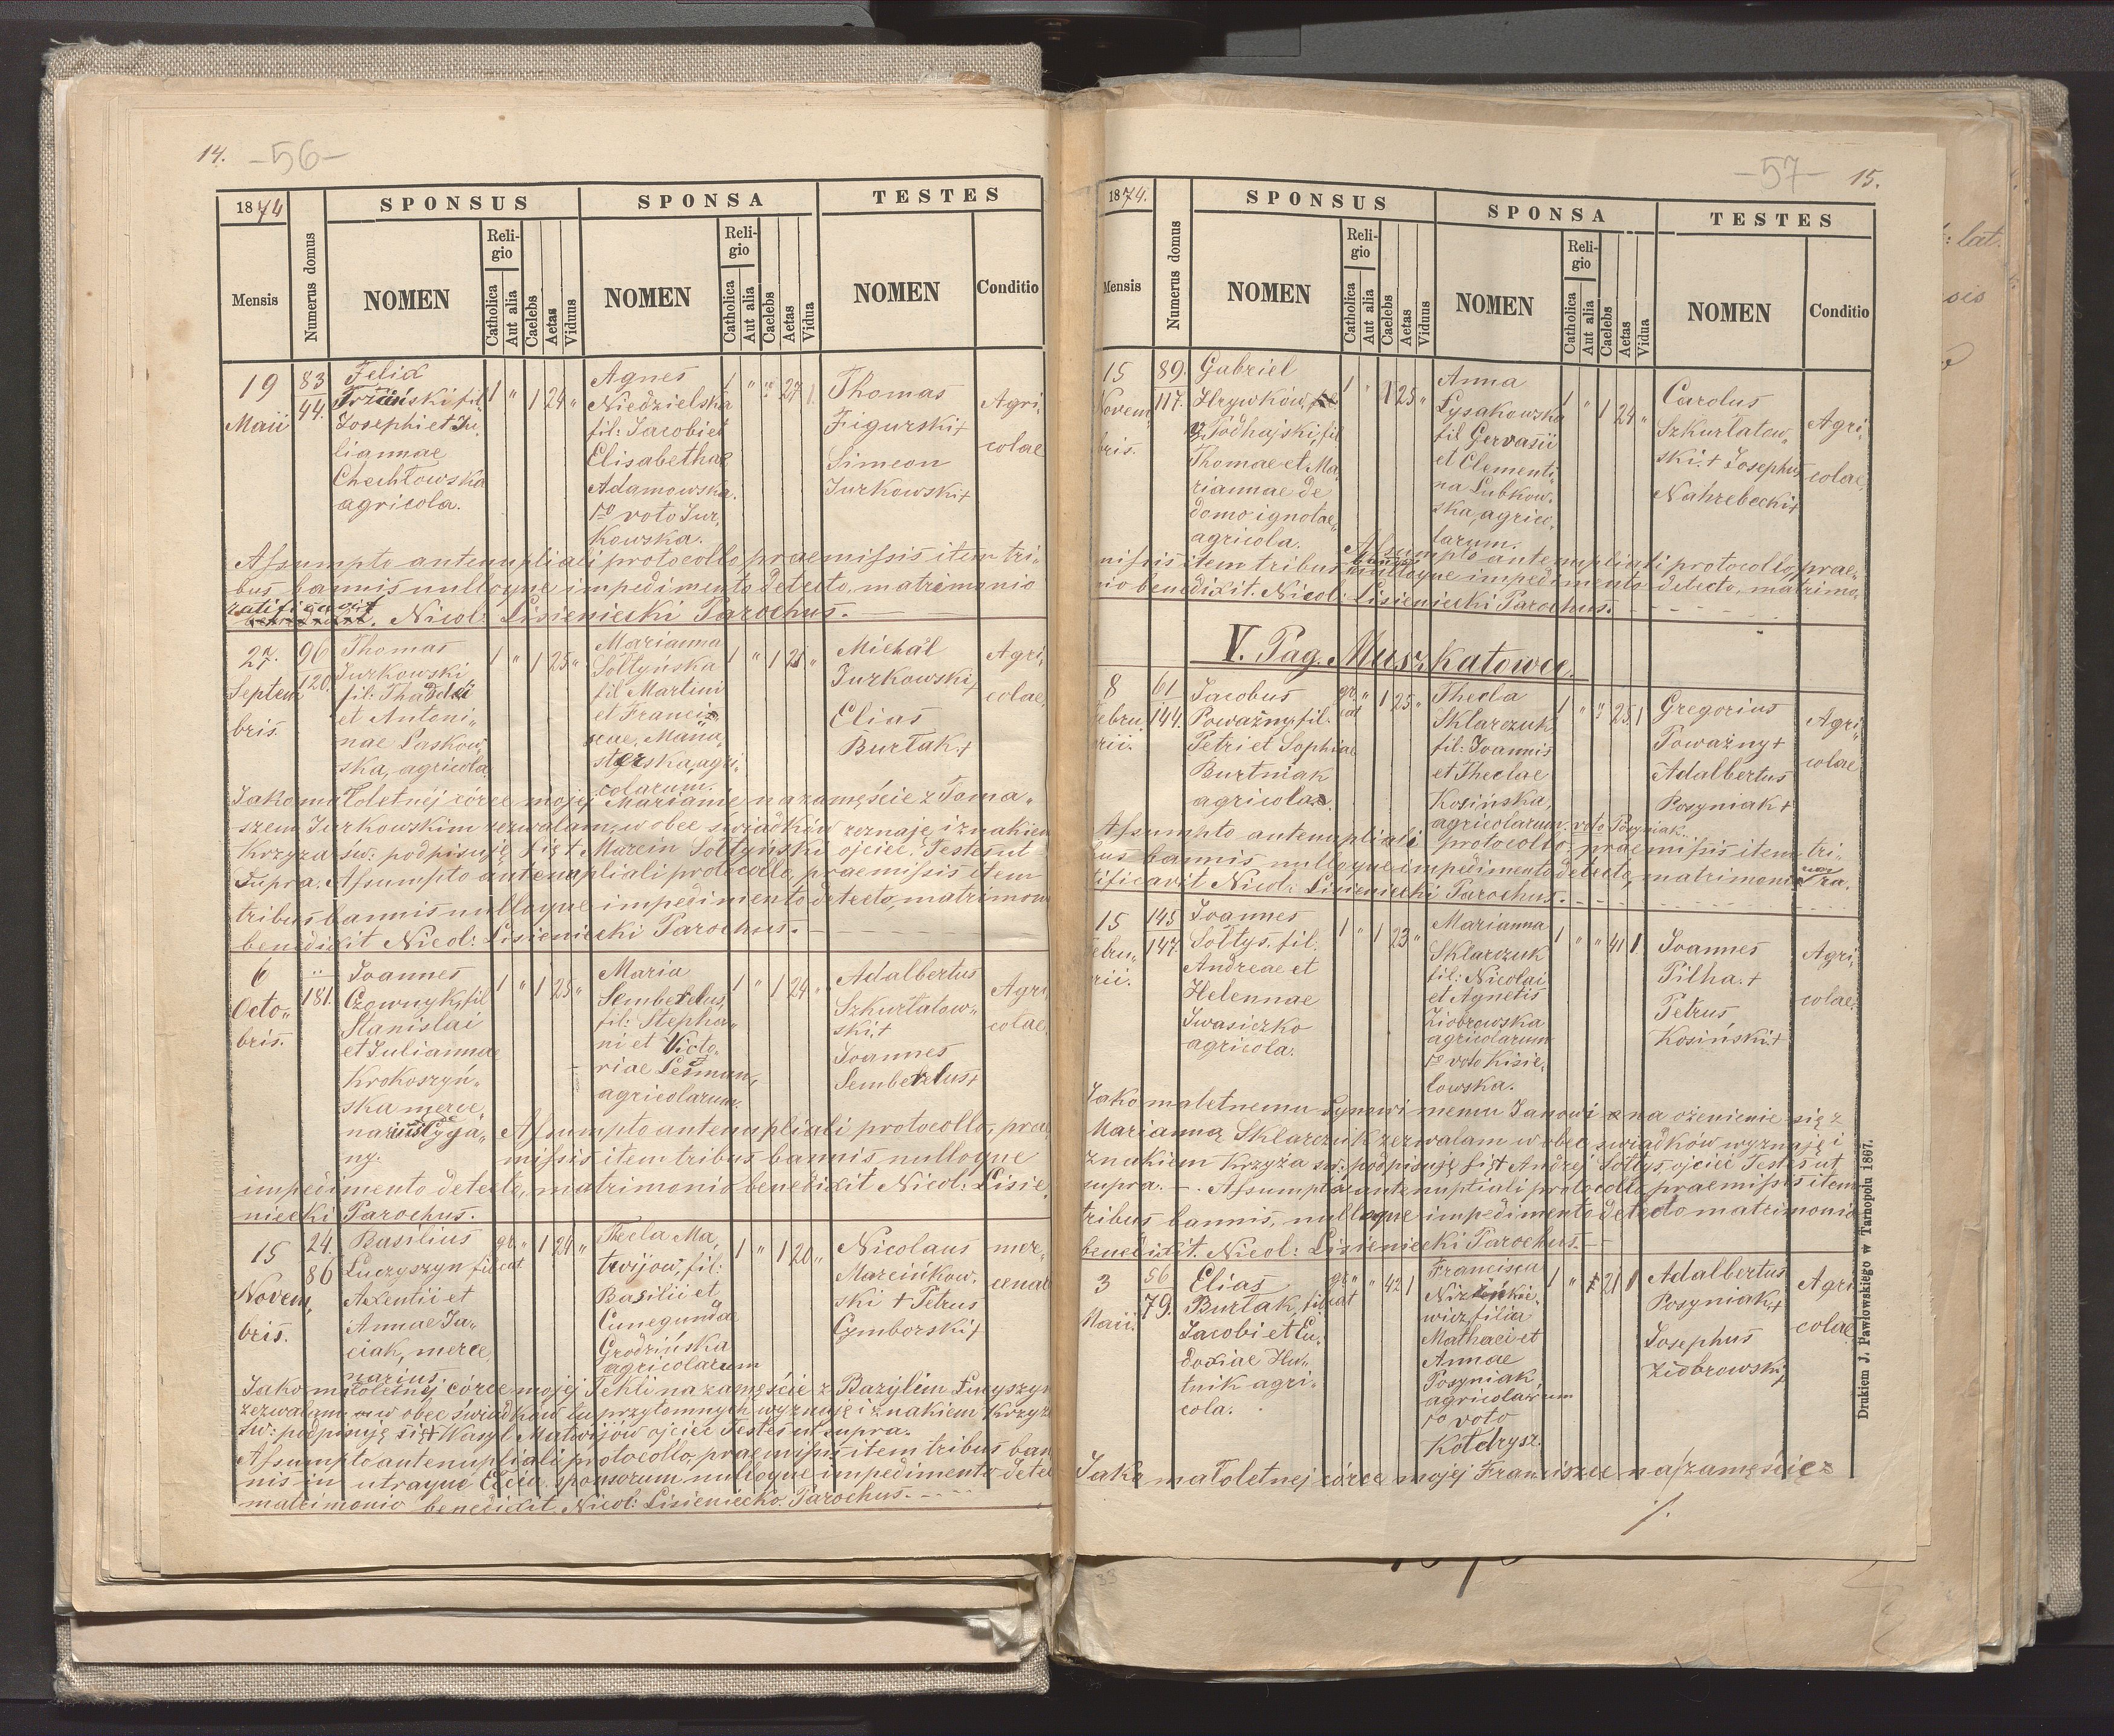 14. -56-
1874
SPONSUS SPONSA TESTES
Mensis Numerus domus NOMEN Religio Catholica Aut alia Caelebs Aetas Viduus NOMEN Religio Catholica Aut alia Caelebs Aetas Vidua NOMEN Conditio
19 Maii
83
44.
Felix
Josephi et Ju,
liannae
Chechłowska
agricola.
1 " 1 24 "
Agnes
Niedzielska
fil: Jacobi et
Elisabethae
Adamowska.
1mo voto Jur,
kowska.
1 " " 27 1.
Thomas
Figurski +
Simeon
Jurkowski +
Agri,
colae
Assumpto antenuptiali protocollo, praemissis item tri,
bus bannis nulloque impedimento detecto, matrimonio
ratificavit. Nicol: Lisieniecki Parochus.
27.
Septem
bris.
96
120.
Thomas
Jurkowski
fil: Thaddei
et Antoni,,
nae Laskow,,
ska, agricola
1 " 1 25 "
Marianna
Sołtyńska
fil Martini
et Francis
cae, Mana,
sterska, agri,
colarum.
1 " 1 21 "
Michał
Jurkowski +
Elias
Burłak. +
Agri,
colae,
Jako małoletnéj córce mojej Marianie na zamęście z Toma,,
szem Jurkowskim zezwalam, w obec świadków zeznaję i znakiem
Krzyża św: podpisuję się + Marcin Sołtyński ojciec. Testes ut
Supra. Assumpto antenuptiali protocollo, praemissis item
tribus bannis nulloque impedimento detecto, matrimon
benedixit Nicol: Lisieniecki Parochus.
6
Octo,,
bris.
"
181.
Joannes
Czownyk, fil
Stanislai
et Juliannae
Krokoszyń,,
ska merce,
narius Cyga,,
ny.
1 " 1 25 "
Maria
Semberelus,
fil: Stepha,,
ni et Victo,,
riae Leśman,
agricolarum.
1 " 1 24 "
Adalbertus
Szkurłatow,,
ski. +
Joannes
Semberelus +
Agri,
colae.
Assumpto antenuptiali protocollo, prae
missis item tribus bannis nulloque
impedimento detecto, matrimonio benedixit Nicol: Lisie,
niecki Parochus.
15
Novem,
bris.
24.
86
Basilius
Luczyszyn fil
Axentii et
Annae Ja,,
ciak, merce,
narius.
gr. cat " 1 24 "
Thecla Ma,
twijow, fil:
Basilii et
Cunegundae
Grodzińska
agricolarum
1 " 1 20 "
Nicolaus
Marcinkow.
ski + Petrus
Cymborski +
mer,
cenar
Jako małoletnéj córce mojej Tekli na zamęście z Bazylim Łuczyszyn
zezwalam w obec świadków tu przytomnych wyznaję i znakiem Krzyża
św: podpisuję się + Wasyl Matwijów ojciec Testes ut supra.
Assumpto antenuptiali protocollo, praemissis item tribus ban
nis in utraque Eccia. sponsorum nulloque impedimento detec
matrimonio benedixit. Nicol: Lisieniecki. Parochus.
-57- 15.
1874.
SPONSUS SPONSA TESTES
Mensis Numerus domus NOMEN Religio Catholica Aut alia Caelebs Aetas Viduus NOMEN Religio Catholica Aut alia Caelebs Aetas Vidua NOMEN Conditio
15
Novem
bris.
89.
117.
Gabriel
Hrywków,
Podhajski, fil
Thomae et Ma,
riannae de
domo ignotae,
agricola.
1 " 1 25 "
Anna
Łysakowska
fil Gervasii
et Clementi,
na Lubkow,
ska, agrico,
larum.
1 " 1 24 "
Carolus
Szkurłatow,,
ski. + Josephus
Nahrebecki +
Agri,
colae.
Assumpto antenuptiali protocollo, prae,
missis item tribus bannis nulloque impedimento detecto, matrimo,
nio benedixit. Nicol: Lisieniecki Parochus.
V. Pag. Muszkatowa.
8
Febru,
arii.
61
144.
Jacobus
Poważny, fil.
Petri et Sophiae
Burtniak
agricola.
gr. cat " 1 25 "
Thecla
Sklarczuk
fil: Joannis
et Theclae
Kosińska,
agricolarum. voto Posyniak.
1 " " 25 1
Gregorius
Poważny +
Adalbertus
Posyniak +
Agri,
colae
Assumpto antenuptiali protocollo praemissis item tri,
bus bannis nulloque impedimento detecto, matrimonium ra,
tificavit Nicol: Lisieniecki Parochus.
15
Febru,,
arii.
145
147
Joannes
Sołtys. fil:
Andreae et
Helennae
Iwasieczko
agricola.
1 " 1 23 "
Marianna
Sklarczuk
fil: Nicolai
et Agnetis
Ziobrowska
agricolarum
1o voto Kisie,
lowska.
1 " " 41 1.
Joannes
Pilha. +
Petrus
Kosiński. +
Agri,
colae.
Jako małetnemu Synowi memu Janowi na ożenienie się z
Marianną Sklarczuk zezwalam w obec świadków wyznaję i
znakiem Krzyża św: podpisuję się + Andrej Sołtys, ojciec Testes ut
supra. Assumpto antenuptiali protocollo praemissis item
tribus bannis, nulloque impedimento detecto matrimonio
benedixit. Nicol: Lisieniecki Parochus.
3
Maii.
56
79.
Elias
Burłak, fil
Jacobi et Eu,
doxiae Hu,,
tnik agri,
cola.
gr. cat " " 42 1
Francisca
wicz, filia
Mathaei et
Annae
Posyniak,
agricolarum
1o voto
Kołdrysz.
1 " 21 1
Adalbertus
Posyniak, +
Josephus
Ziobrowski +
Agri
colae
Jako małoletnej córce mojej Franciszce na zamęście z
Drukiem J. Pawłowskiego w Tarnopolu 1867.